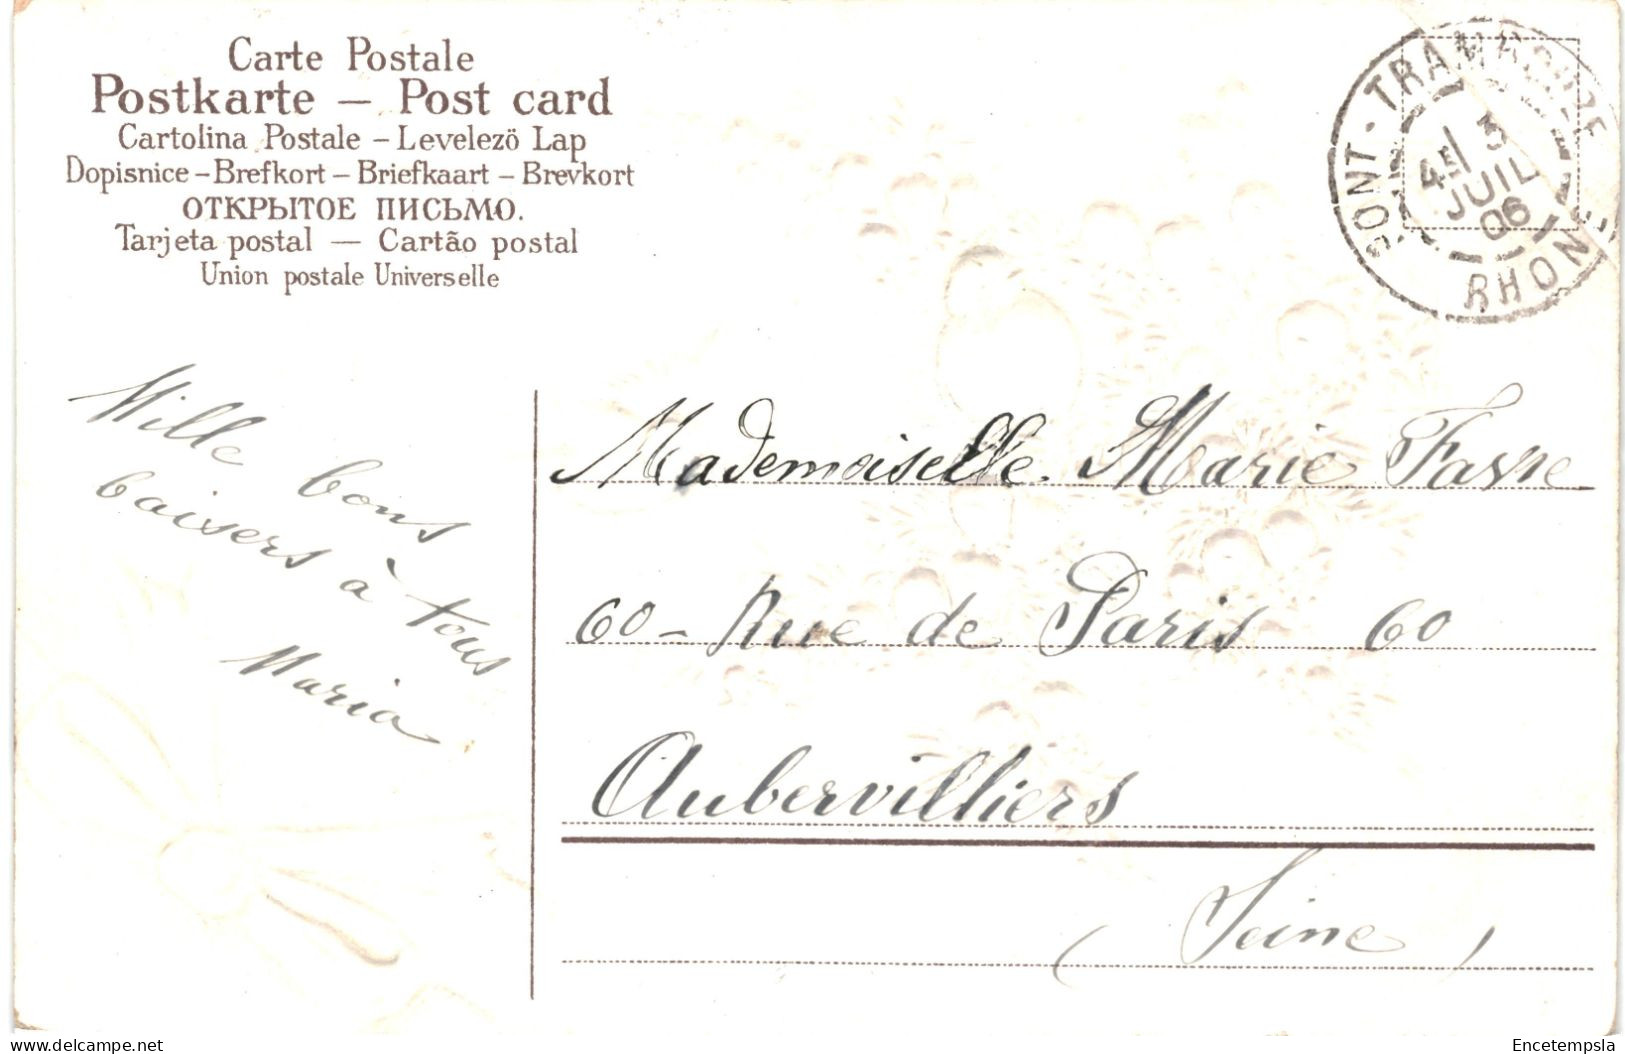 Carte Postale
Postkarte – Post card
Cartolina Postale – Levelezö Lap
Dopisnice – Brefkort – Briefkaart – Brevkort
ОТКРЫТОЕ ПИСЬМО.
Tarjeta postal — Cartão postal
Union postale Universelle
PONT-TRAMBOUZE
3
JUIL
06
RHONE
Mille bons
baisers à tous
Maria
Mademoiselle Marie Favre
60 – Rue de Paris 60
Aubervilliers
(Seine)
Encetempsla
delcampe.net